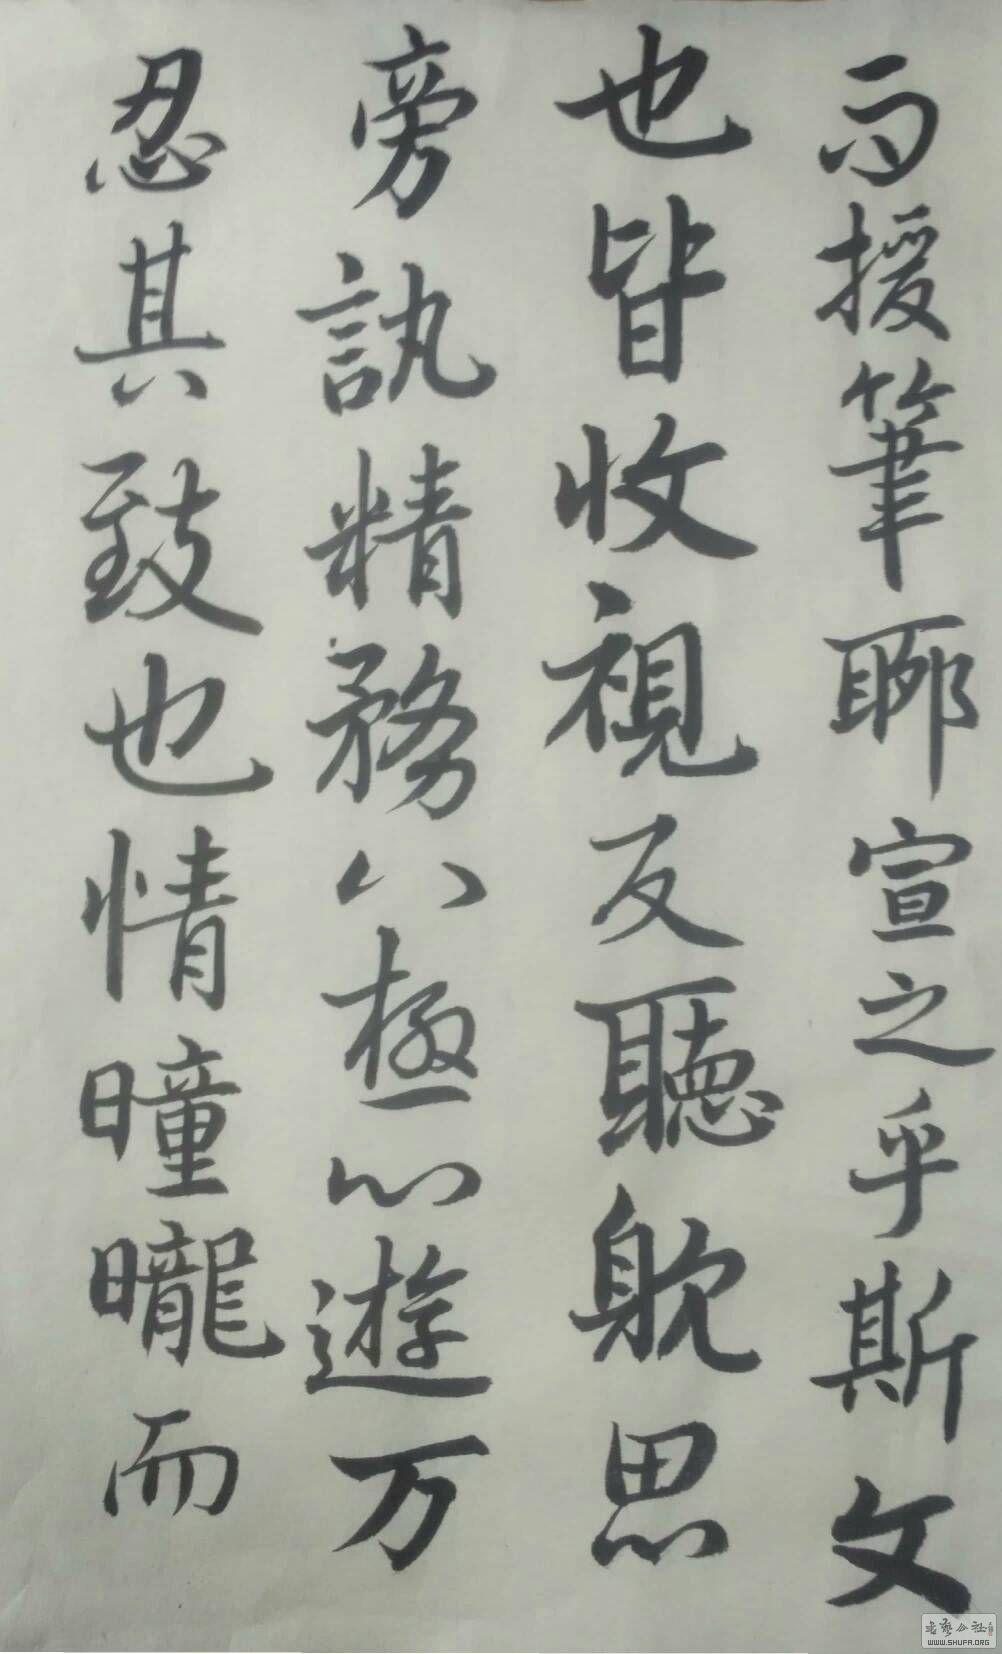 而援筆聊宣之乎斯文
也皆收視反聽躭思
旁訊精務八極心遊万
忍其致也情曈曨而
書藝公社
WWW.SHUFA.ORG